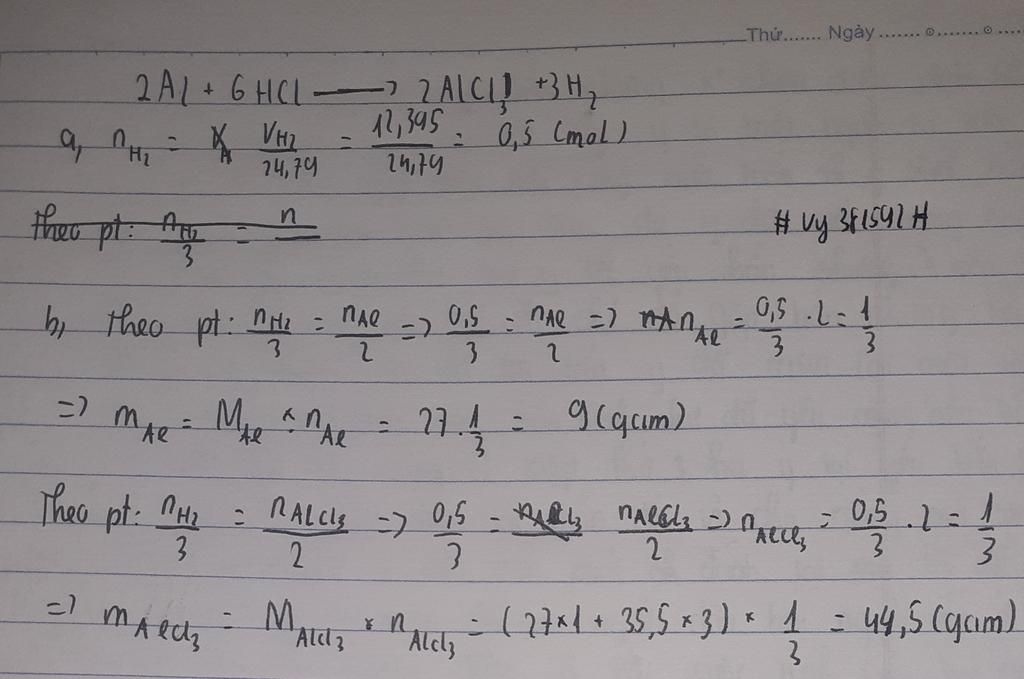 Thứ....... Ngày ....... ⊙....... ⊙ ....
2Al + 6HCl ⟶ 2AlCl₃ + 3H₂
a, n_H₂ = V_H₂/24,79 = 12,395/24,79 = 0,5 (mol)
Theo pt: n_H₂/3 = n
# Vy 381592H
b, Theo pt: n_H₂/3 = n_Al/2 => 0,5/3 = n_Al/2 => n_Al = 0,5/3 . 2 = 1/3
=> m_Al = M_Al × n_Al = 27 . 1/3 = 9 (gam)
Theo pt: n_H₂/3 = n_AlCl₃/2 => 0,5/3 = n_AlCl₃/2 => n_AlCl₃ = 0,5/3 . 2 = 1/3
=> m_AlCl₃ = M_AlCl₃ × n_AlCl₃ = (27×1 + 35,5×3) × 1/3 = 44,5 (gam)